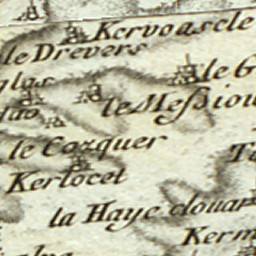 Kervoascle
le Drevers
le G
glas
le Messiou
le Cozquer
Kerlocet
la Haye clouar
Kerm